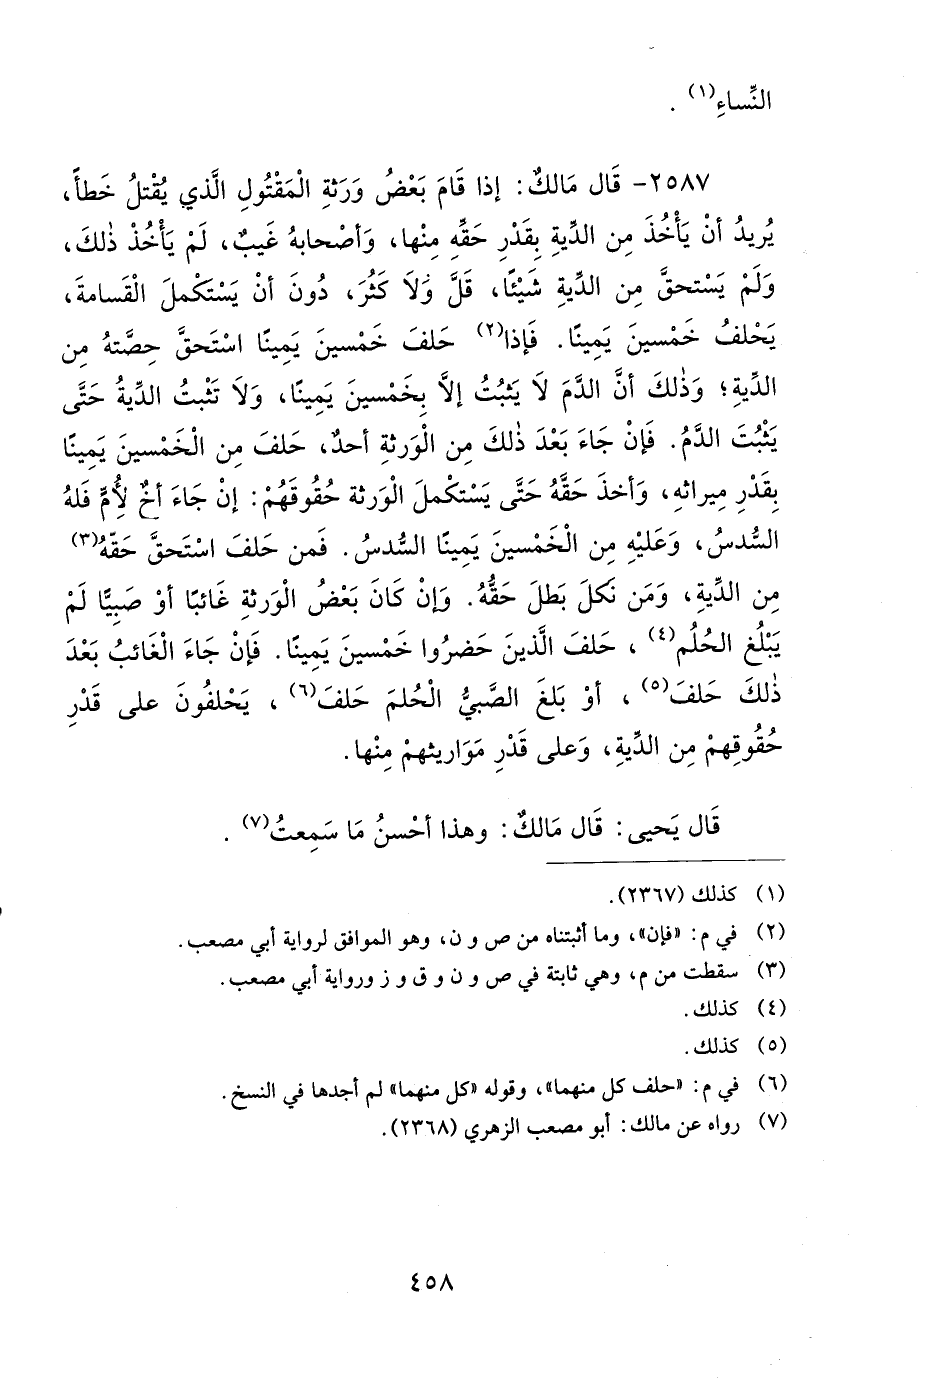 النِّساءِ(١) .
٢٥٨٧- قَال مَالكٌ: إذا قَامَ بَعْضُ وَرَثةِ الْمَقْتُولِ الَّذي يُقْتلُ خَطأً،
يُريدُ أنْ يَأْخُذَ مِن الدِّيةِ بِقَدْرِ حَقِّهِ مِنْها، وَأصْحابهُ غَيبٌ، لَمْ يَأْخُذْ ذٰلكَ،
وَلَمْ يَسْتحقَّ مِن الدِّيةِ شَيْئًا، قَلَّ وَلَا كَثُرَ، دُونَ أنْ يَسْتكملَ الْقَسامةَ،
يَحْلفُ خَمْسينَ يَمينًا. فَإذا(٢) حَلفَ خَمْسينَ يَمينًا اسْتَحقَّ حِصَّتهُ مِن
الدِّيةِ؛ وَذٰلكَ أنَّ الدَّمَ لَا يَثبُتُ إلاَّ بِخَمْسينَ يَمينًا، وَلَا تَثْبتُ الدِّيةُ حَتَّى
يَثْبُتَ الدَّمُ. فَإنْ جَاءَ بَعْدَ ذٰلكَ مِن الْوَرثةِ أحدٌ، حَلفَ مِن الْخَمْسينَ يَمينًا
بِقَدْرِ مِيراثهِ، وَأخذَ حَقَّهُ حَتَّى يَسْتكْملَ الْوَرثة حُقُوقَهُمْ: إنْ جَاءَ أخٌ لِأُمٍّ فَلهُ
السُّدسُ، وَعَليْهِ مِن الْخَمْسينَ يَمينًا السُّدسُ. فَمن حَلفَ اسْتَحقَّ حَقّهُ(٣)
مِن الدِّيةِ، وَمَن نَكلَ بَطلَ حَقُّهُ. وَإنْ كَانَ بَعْضُ الْوَرثةِ غَائبًا أوْ صَبيًّا لَمْ
يَبْلُغ الحُلُم(٤) ، حَلفَ الَّذينَ حَضرُوا خَمْسينَ يَمينًا. فَإنْ جَاءَ الْغَائبُ بَعْدَ
ذٰلكَ حَلفَ(٥) ، أوْ بَلغَ الصَّبيُّ الْحُلمَ حَلفَ(٦) ، يَحْلفُونَ على قَدْرِ
حُقُوقِهمْ مِن الدِّيةِ، وَعلى قَدْرِ مَوَاريثهمْ مِنْها.
قَال يَحيى: قَال مَالكٌ: وهذا أحْسنُ مَا سَمِعتُ(٧) .
(١) كذلك (٢٣٦٧).
(٢) في م: «فإن»، وما أثبتناه من ص و ن، وهو الموافق لرواية أبي مصعب.
(٣) سقطت من م، وهي ثابتة في ص و ن و ق و ز ورواية أبي مصعب.
(٤) كذلك.
(٥) كذلك.
(٦) في م: «حلف كل منهما»، وقوله «كل منهما» لم أجدها في النسخ.
(٧) رواه عن مالك: أبو مصعب الزهري (٢٣٦٨).
٤٥٨